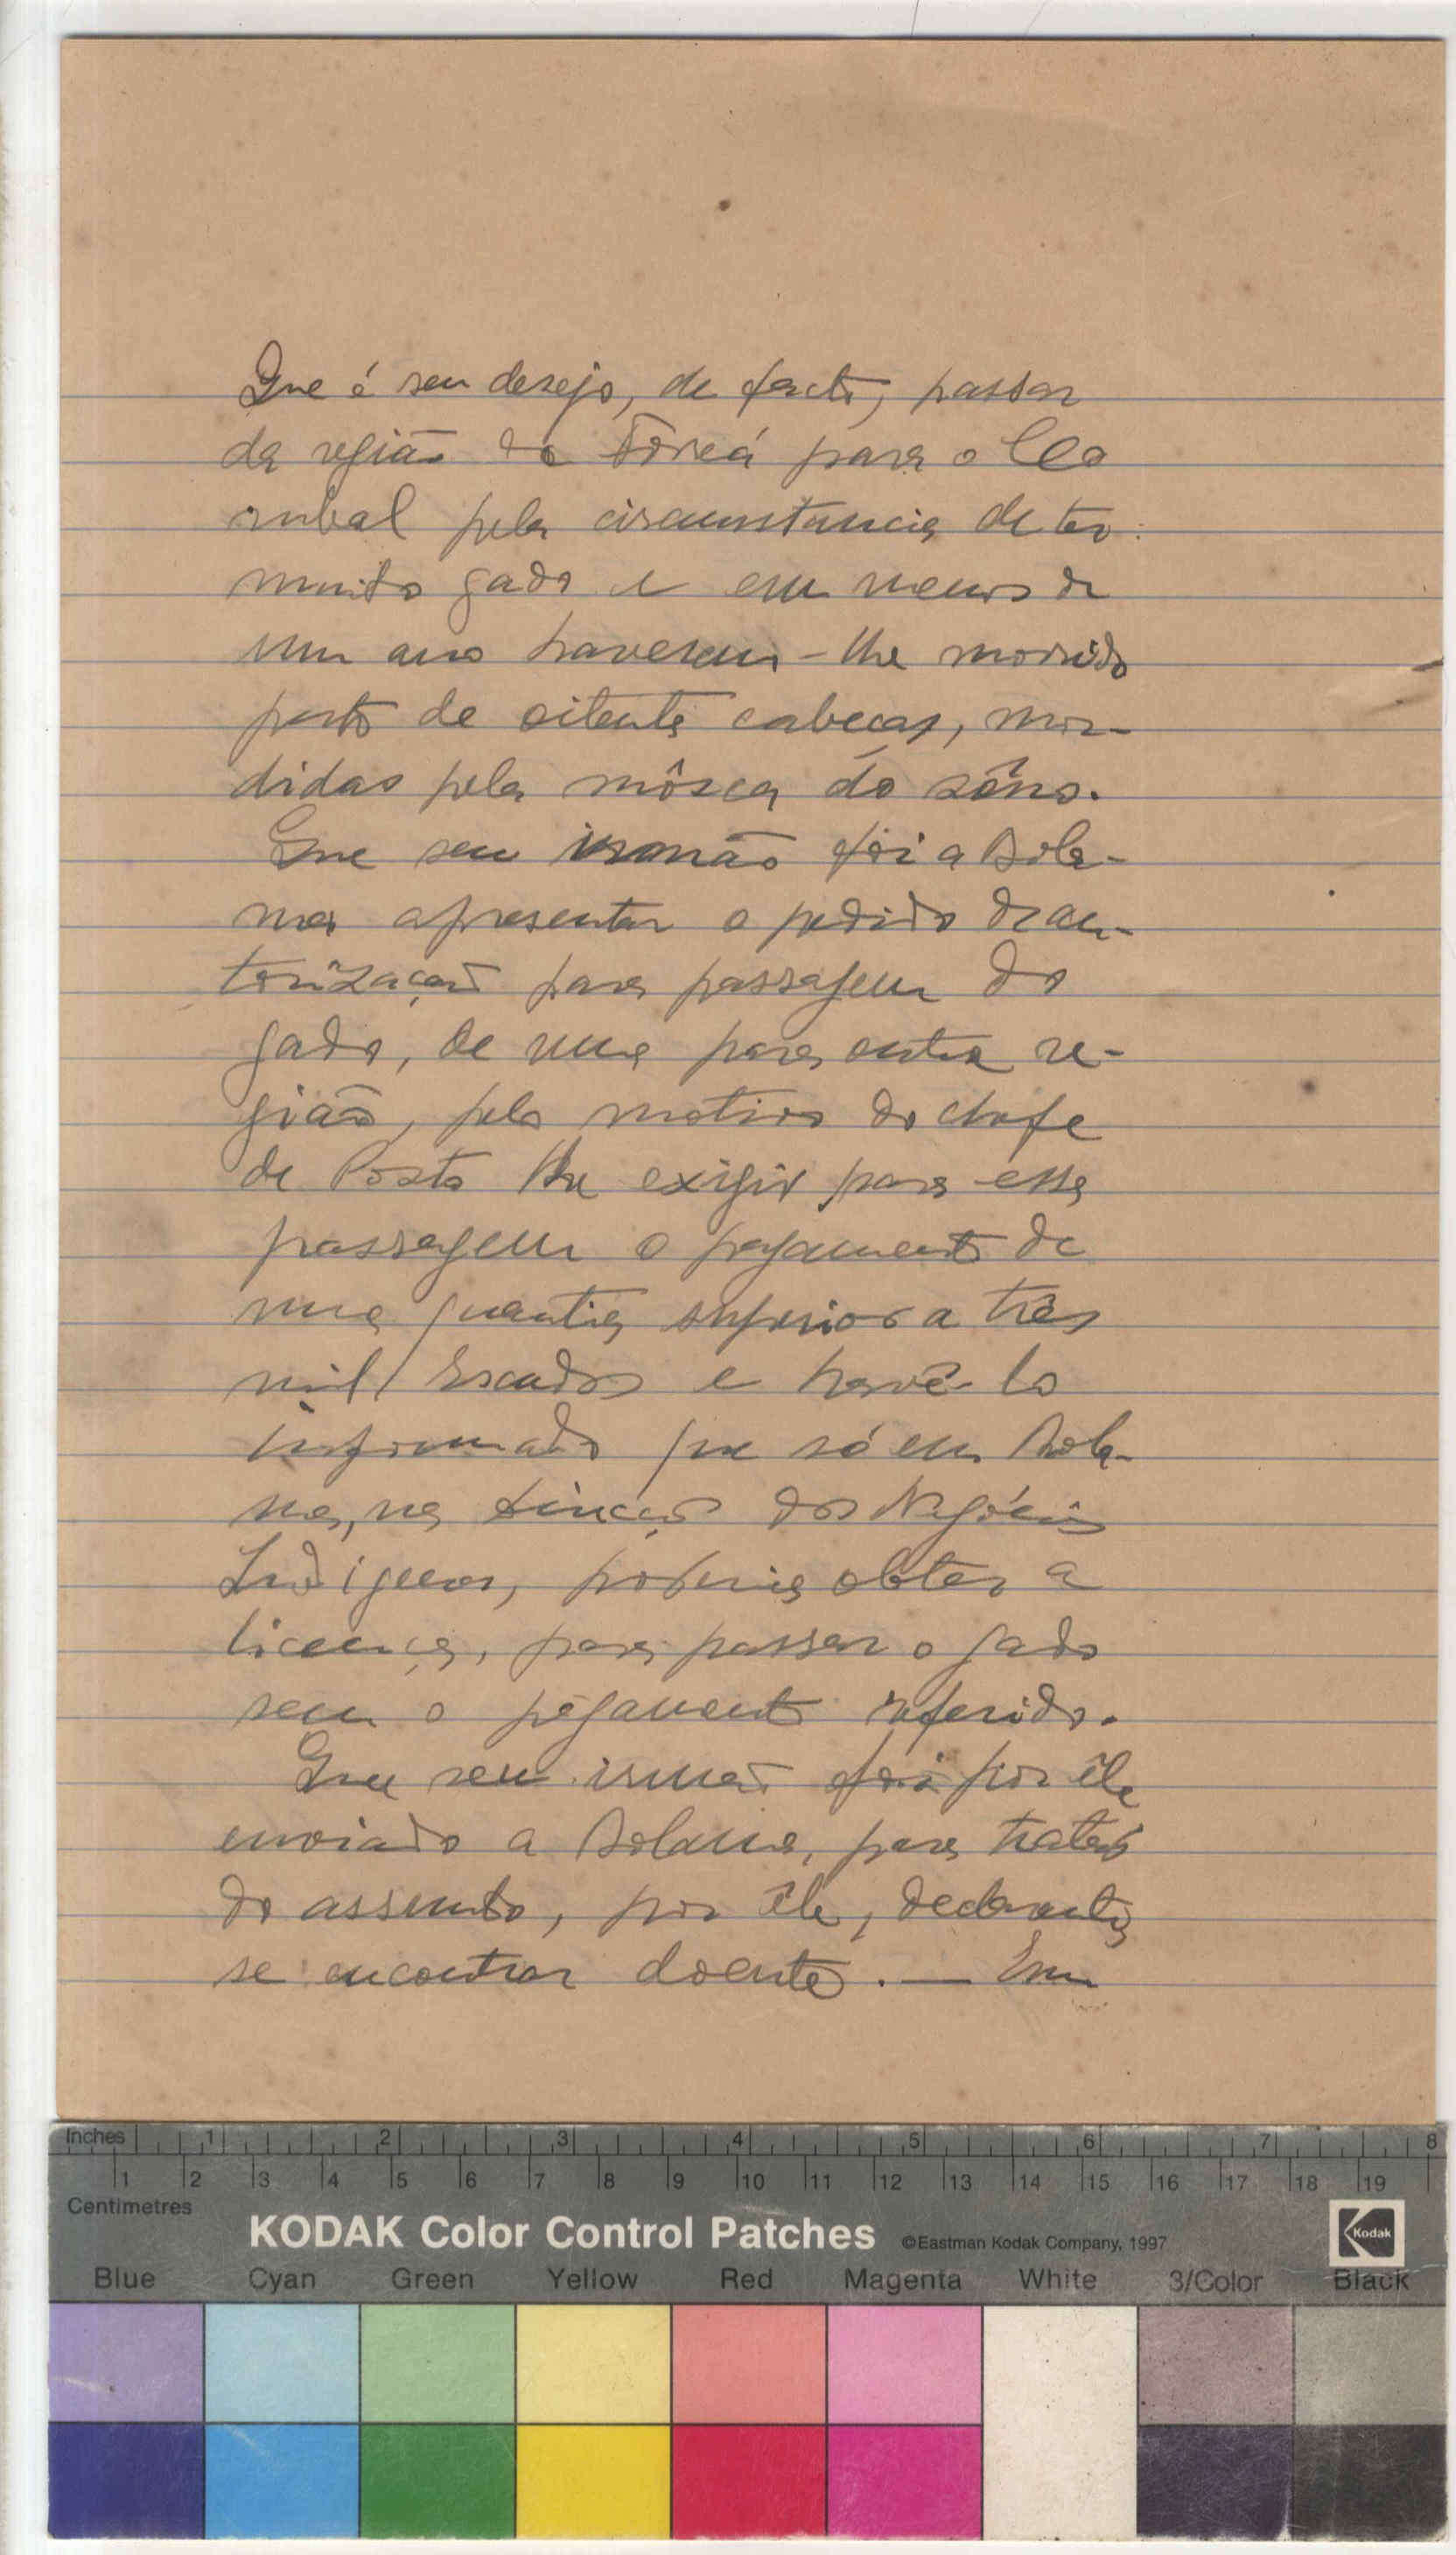 Que é seu desejo, de facto, passar
da região do Foreá para o Co
rubal pela circumstancia de ter
muito gado e em menos de
um ano haverem-lhe morrido
perto de oitenta cabeças, mor-
didas pela môsca do sôno.
Que seu irmão foi a Bola-
ma apresentar o pedido de au-
torização para passagem do
gado, de uma para outra re-
gião, pelo motivo do chefe
de Posto lhe exigir para essa
passagem o pagamento de
uma quantia superior a três
mil Escudos e havê-lo
informado que só em Bola-
ma, na dos Negócios
Indígenas, poderia obter a
licença, para passar o gado
sem o pagamento referido.
Que seu irmão foi por êle
enviado a Bolama, para tratar
do assunto, por êle, declarante,
se encontrar doente. —
Inches 1 2 3 4 5 6 7 8
1 2 3 4 5 6 7 8 9 10 11 12 13 14 15 16 17 18 19
Centimetres
KODAK Color Control Patches ©Eastman Kodak Company, 1997 Kodak
Blue Cyan Green Yellow Red Magenta White 3/Color Black